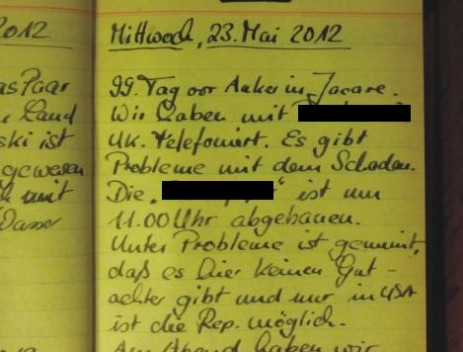 2012
Mittwoch, 23. Mai 2012
as Paar
Land
ski ist
gewesen
mit
99. Tag vor Anker in Jacare.
Wir haben mit
UK. telefoniert. Es gibt
Probleme mit dem Schaden.
Die „ “ ist um
11.00 Uhr abgehauen.
Unter Probleme ist gemeint,
daß es hier keinen Gut-
achter gibt und nur in USA
ist die Rep. möglich.
Am Abend haben wir